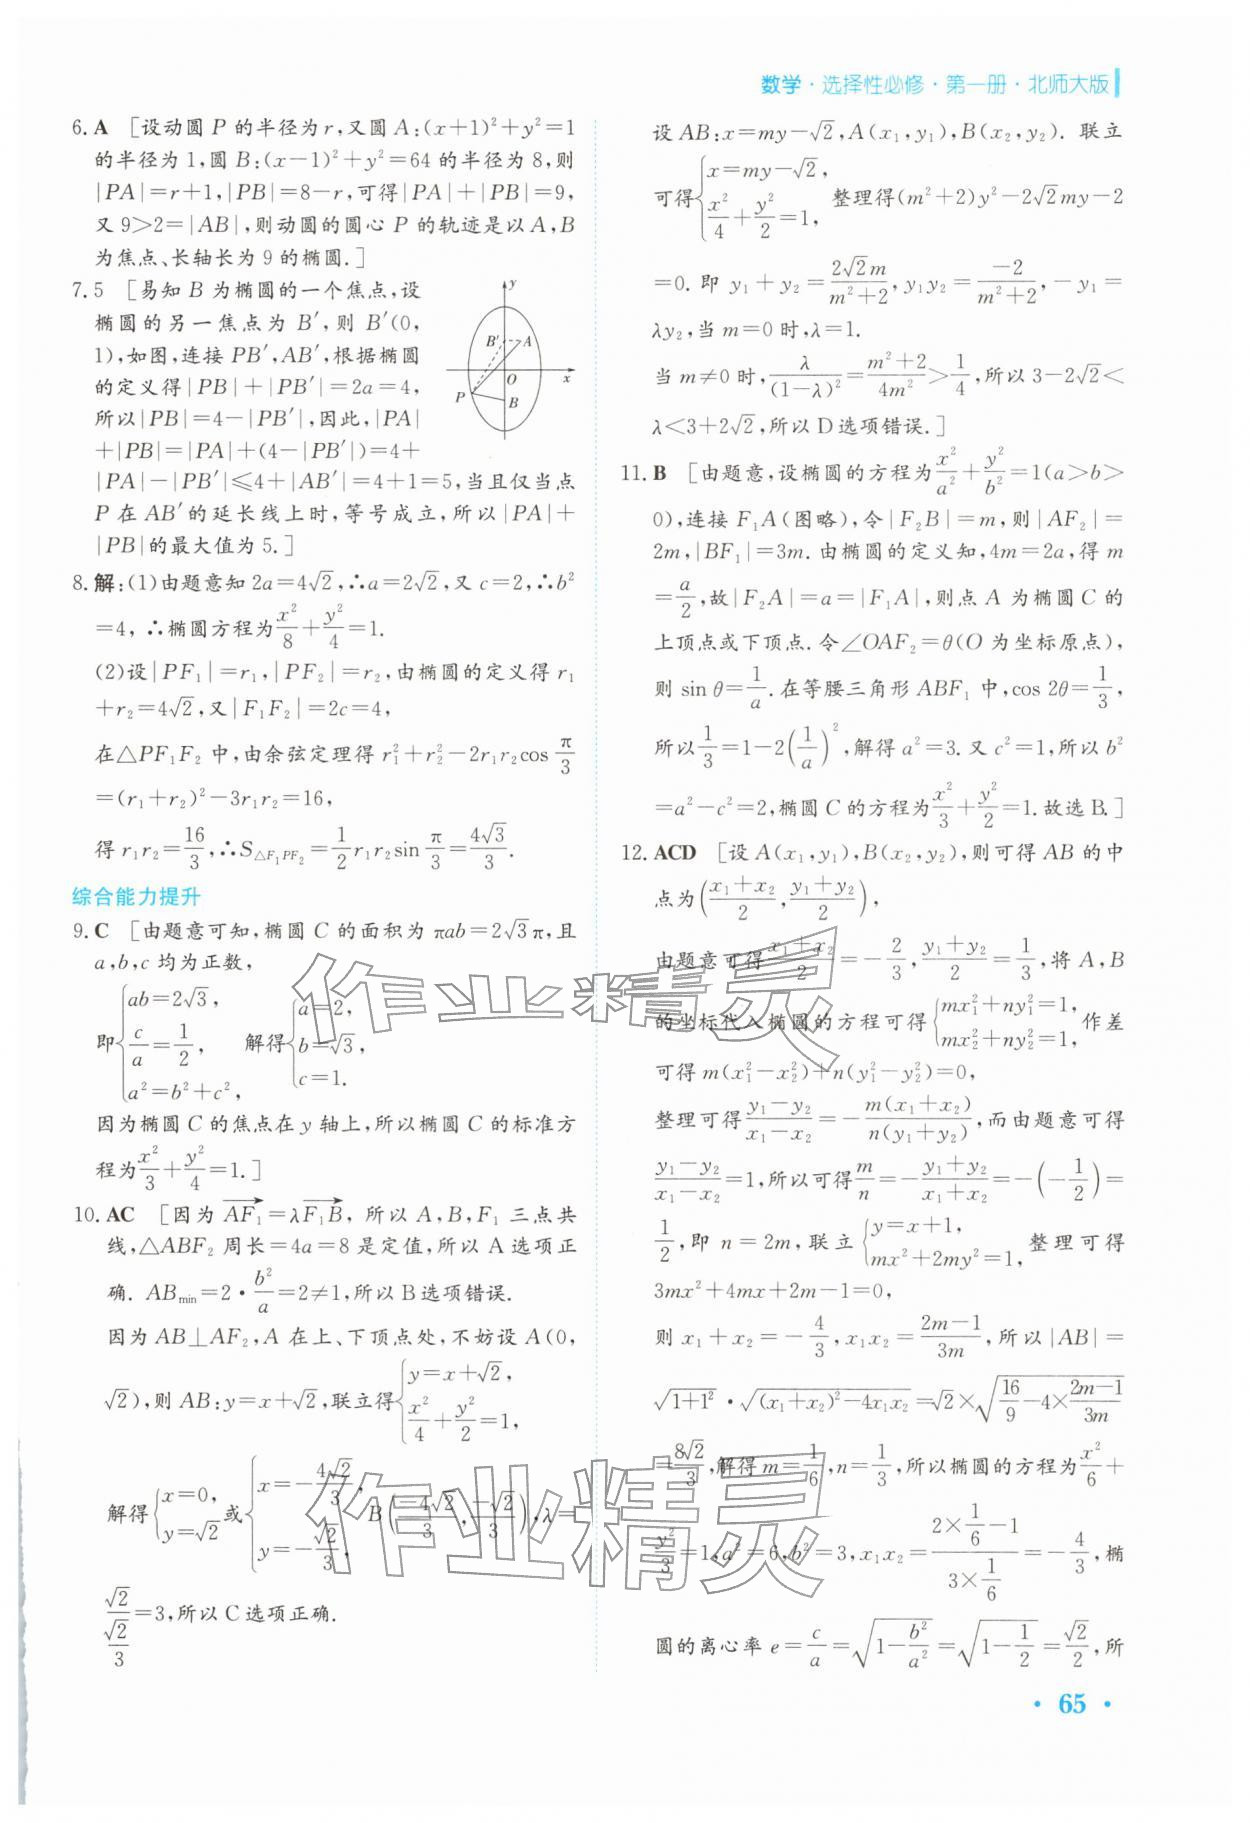 数学·选择性必修·第一册·北师大版
6. A [设动圆 P 的半径为 r,又圆 A:(x+1)²+y²=1
的半径为 1,圆 B:(x-1)²+y²=64 的半径为 8,则
|PA|=r+1,|PB|=8-r,可得|PA|+|PB|=9,
又 9>2=|AB|,则动圆的圆心 P 的轨迹是以 A,B
为焦点、长轴长为 9 的椭圆.]
7. 5 [易知 B 为椭圆的一个焦点,设
椭圆的另一焦点为 B′,则 B′(0,
1),如图,连接 PB′,AB′,根据椭圆
的定义得|PB|+|PB′|=2a=4,
所以|PB|=4-|PB′|,因此,|PA|
+|PB|=|PA|+(4-|PB′|)=4+
|PA|-|PB′|≤4+|AB′|=4+1=5,当且仅当点
P 在 AB′的延长线上时,等号成立,所以|PA|+
|PB|的最大值为 5.]
y
B′ A
O x
P B
8. 解:(1)由题意知 2a=4√2,∴a=2√2,又 c=2,∴b²
=4,∴椭圆方程为x²/8+y²/4=1.
(2)设|PF₁|=r₁,|PF₂|=r₂,由椭圆的定义得 r₁
+r₂=4√2,又|F₁F₂|=2c=4,
在△PF₁F₂ 中,由余弦定理得 r₁²+r₂²-2r₁r₂cos π/3
=(r₁+r₂)²-3r₁r₂=16,
得 r₁r₂=16/3,∴S△F₁PF₂=1/2 r₁r₂sin π/3=4√3/3.
综合能力提升
9. C [由题意可知,椭圆 C 的面积为 πab=2√3π,且
a,b,c 均为正数,
即{ab=2√3, c/a=1/2, a²=b²+c², 解得{a=2, b=√3, c=1.
因为椭圆 C 的焦点在 y 轴上,所以椭圆 C 的标准方
程为x²/3+y²/4=1.]
10. AC [因为 AF₁→=λF₁B→, 所以 A,B,F₁ 三点共
线,△ABF₂ 周长=4a=8 是定值,所以 A 选项正
确. ABmin=2·b²/a=2≠1,所以 B 选项错误.
因为 AB⊥AF₂,A 在上、下顶点处,不妨设 A(0,
√2),则 AB:y=x+√2,联立得{y=x+√2, x²/4+y²/2=1,
解得{x=0, y=√2 或{x=-4√2/3, y=-√2/3, B(-4√2/3,-√2/3),λ=
√2/(√2/3)=3,所以 C 选项正确.
设 AB:x=my-√2,A(x₁,y₁),B(x₂,y₂). 联立
可得{x=my-√2, x²/4+y²/2=1, 整理得(m²+2)y²-2√2my-2
=0. 即 y₁+y₂=2√2m/(m²+2),y₁y₂=-2/(m²+2),-y₁=
λy₂,当 m=0 时,λ=1.
当 m≠0 时,λ/(1-λ)²=(m²+2)/4m²>1/4,所以 3-2√2<
λ<3+2√2,所以 D 选项错误.]
11. B [由题意,设椭圆的方程为x²/a²+y²/b²=1(a>b>
0),连接 F₁A(图略),令|F₂B|=m,则|AF₂|=
2m,|BF₁|=3m. 由椭圆的定义知,4m=2a,得 m
=a/2,故|F₂A|=a=|F₁A|,则点 A 为椭圆 C 的
上顶点或下顶点.令∠OAF₂=θ(O 为坐标原点),
则 sin θ=1/a.在等腰三角形 ABF₁ 中,cos 2θ=1/3,
所以1/3=1-2(1/a)²,解得 a²=3. 又 c²=1,所以 b²
=a²-c²=2,椭圆 C 的方程为x²/3+y²/2=1.故选 B.]
12. ACD [设 A(x₁,y₁),B(x₂,y₂),则可得 AB 的中
点为((x₁+x₂)/2,(y₁+y₂)/2),
由题意可得(x₁+x₂)/2=-2/3,(y₁+y₂)/2=1/3,将 A,B
的坐标代入椭圆的方程可得{mx₁²+ny₁²=1, mx₂²+ny₂²=1, 作差
可得 m(x₁²-x₂²)+n(y₁²-y₂²)=0,
整理可得(y₁-y₂)/(x₁-x₂)=-m(x₁+x₂)/n(y₁+y₂),而由题意可得
(y₁-y₂)/(x₁-x₂)=1,所以可得m/n=-(y₁+y₂)/(x₁+x₂)=-(-1/2)=
1/2,即 n=2m,联立{y=x+1, mx²+2my²=1, 整理可得
3mx²+4mx+2m-1=0,
则 x₁+x₂=-4/3,x₁x₂=(2m-1)/3m,所以|AB|=
√(1+1²)·√((x₁+x₂)²-4x₁x₂)=√2×√(16/9-4×(2m-1)/3m)
=8√2/3,解得 m=1/6,n=1/3,所以椭圆的方程为x²/6+
y²/3=1,a²=6,b²=3,x₁x₂=(2×1/6-1)/(3×1/6)=-4/3,椭
圆的离心率 e=c/a=√(1-b²/a²)=√(1-1/2)=√2/2,所
作业精灵
作业精灵
·65·